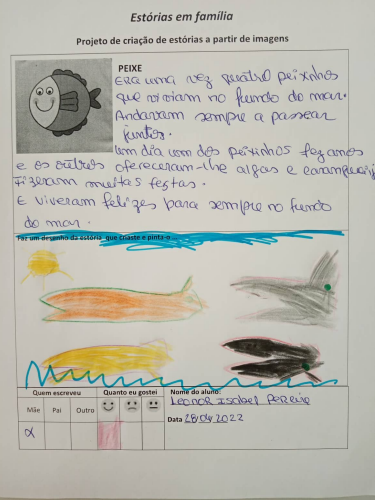 Estórias em família
Projeto de criação de estórias a partir de imagens
PEIXE
Era uma vez quatro peixinhos
que viviam no fundo do mar.
Andavam sempre a passear
juntos.
Um dia um dos peixinhos fez anos
e os outros ofereceram-lhe algas e
Fizeram muitas festas.
E viveram felizes para sempre no fundo
do mar.
Faz um desenho da estória que criaste e pinta-o
Quem escreveu Quanto eu gostei Nome do aluno:
Leonor Isabel Pereira
Mãe Pai Outro
Data 28 04 2022
X